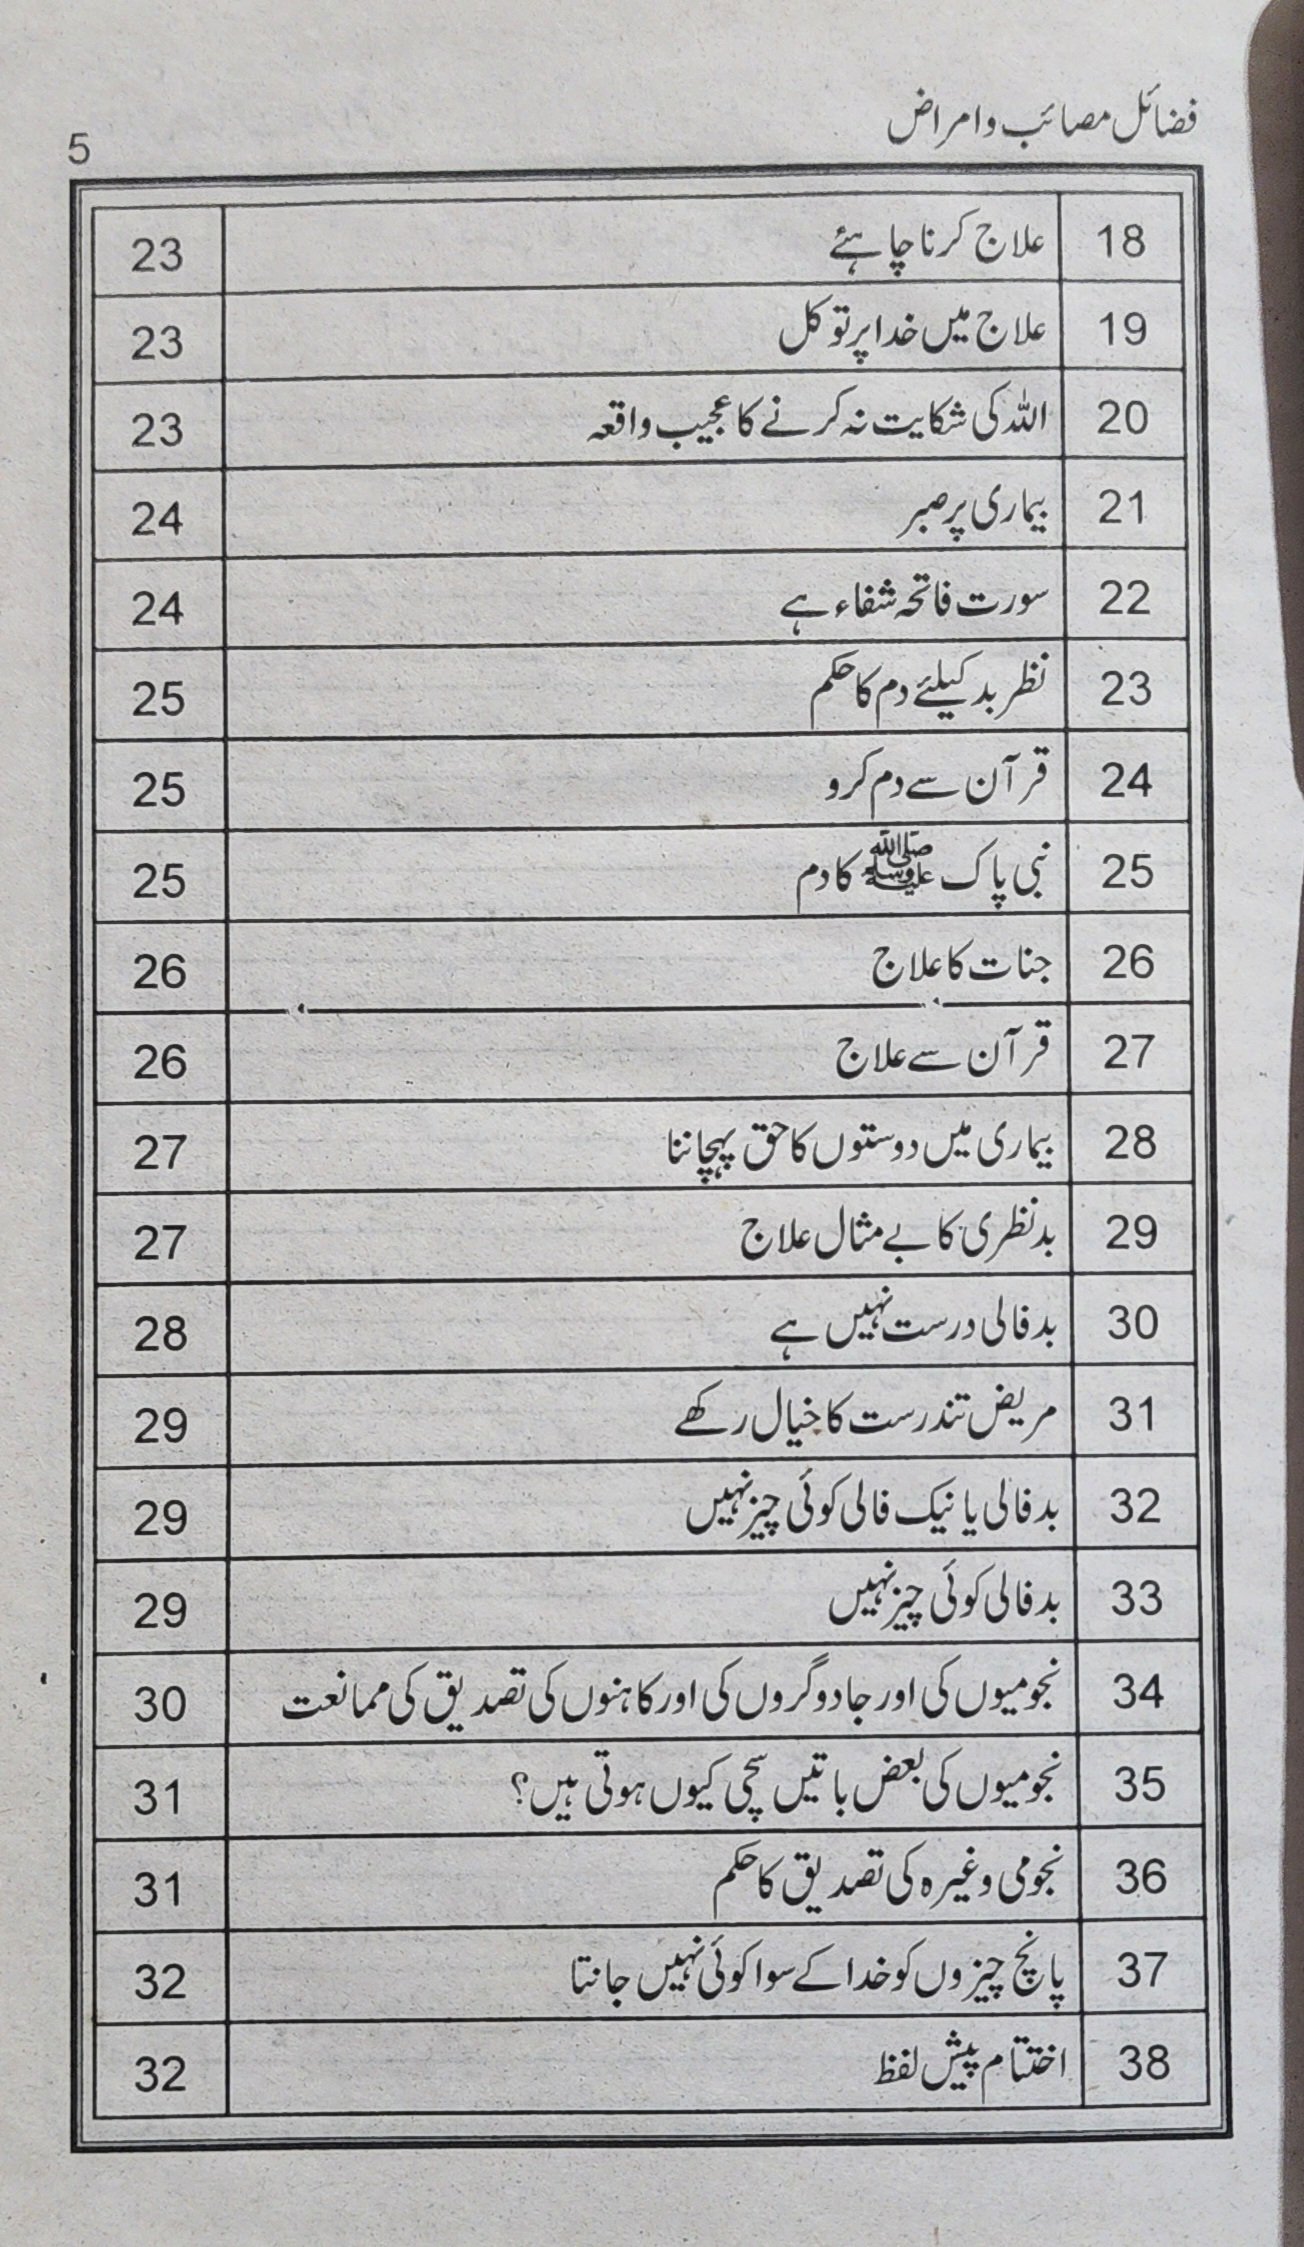 فضائل مصائب و امراض
5
18 علاج کرنا چاہئے 23
19 علاج میں خدا پر توکل 23
20 اللہ کی شکایت نہ کرنے کا عجیب واقعہ 23
21 بیماری پر صبر 24
22 سورت فاتحہ شفاء ہے 24
23 نظر بد کیلئے دم کا حکم 25
24 قرآن سے دم کرو 25
25 نبی پاک ﷺ کا دم 25
26 جنات کا علاج 26
27 قرآن سے علاج 26
28 بیماری میں دوستوں کا حق پہچاننا 27
29 بدنظری کا بے مثال علاج 27
30 بدفالی درست نہیں ہے 28
31 مریض تندرست کا خیال رکھے 29
32 بدفالی یا نیک فالی کوئی چیز نہیں 29
33 بدفالی کوئی چیز نہیں 29
34 نجومیوں کی اور جادوگروں کی اور کاہنوں کی تصدیق کی ممانعت 30
35 نجومیوں کی بعض باتیں سچی کیوں ہوتی ہیں؟ 31
36 نجومی وغیرہ کی تصدیق کا حکم 31
37 پانچ چیزوں کو خدا کے سوا کوئی نہیں جانتا 32
38 اختتام پیش لفظ 32